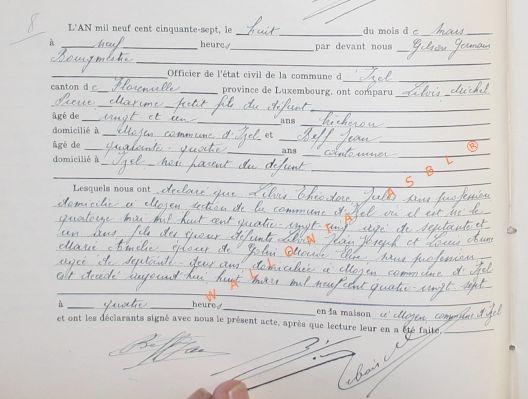 8
L'AN mil neuf cent cinquante-sept, le huit du mois de mars
à neuf heures par devant nous Gilson Germain
Bourgmestre
Officier de l'état civil de la commune d'Izel
canton de Florenville province de Luxembourg, ont comparu Michel
Pierre Maxime petit fils du défunt
âgé de vingt et un ans
domicilié à Moyen commune d'Izel et Jean
âgé de quarante-quatre ans cantonnier
domicilié à Izel non parent du défunt
Lesquels nous ont déclaré que Théodore Jules sans profession
domicilié à Moyen section de la commune d'Izel où il est né le
quatorze mai mil huit cent quatre-vingt-cinq âgé de septante et
un ans fils des époux défunts Jean Joseph et Louis Anne
Marie Amélie époux de sans profession
âgée de septante-deux ans domiciliée à Moyen commune d'Izel
est décédé aujourd'hui huit mars mil neuf cent
à quatre heures en la maison à Moyen, commune d'Izel
et ont les déclarants signé avec nous le présent acte, après que lecture leur en a été faite,
WALLONIA ASBL ®